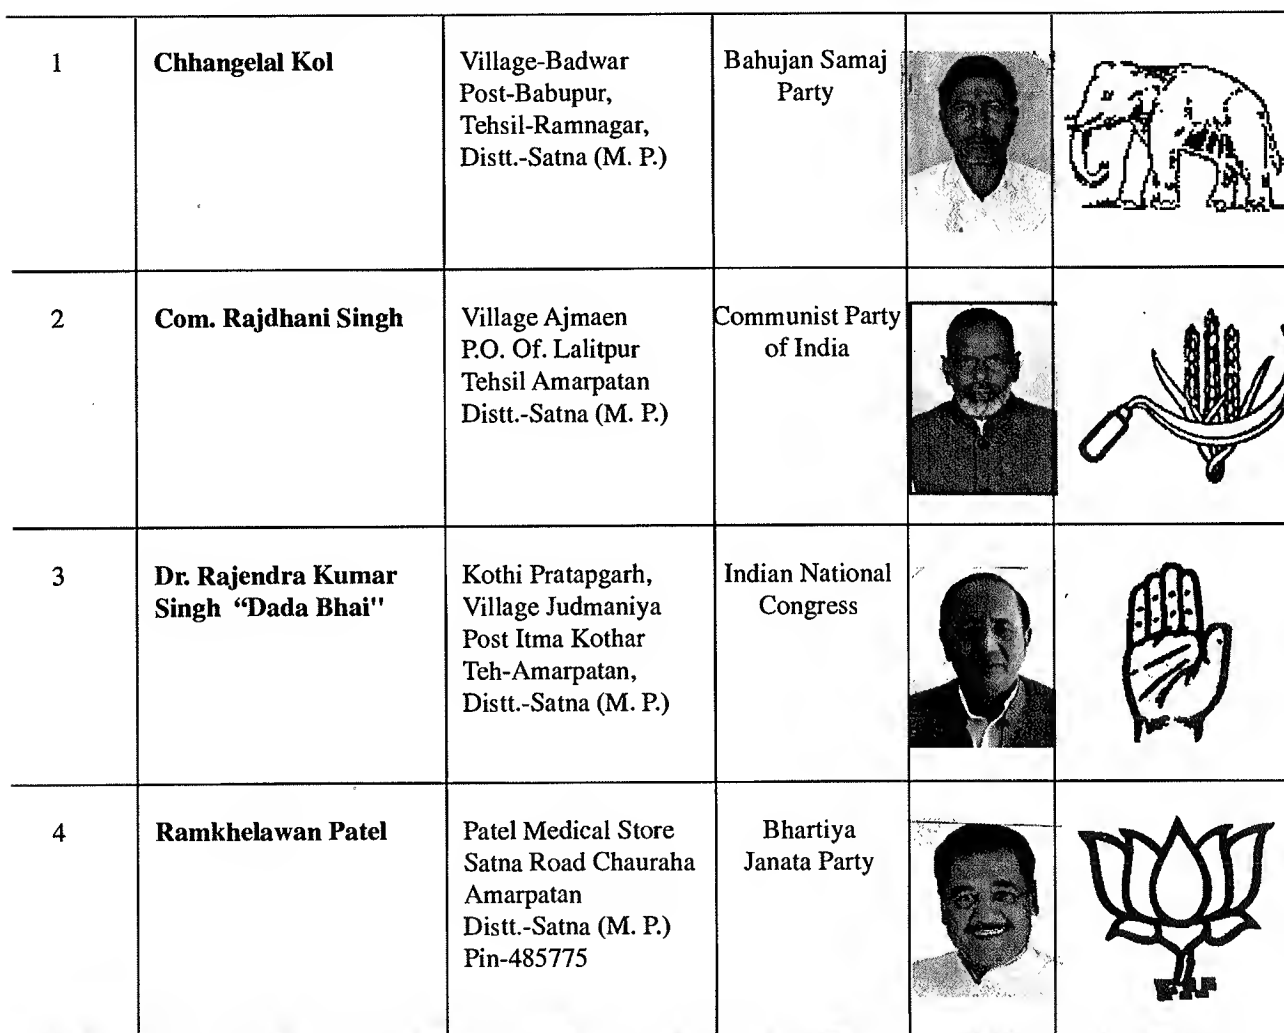 1
Chhangelal Kol
Village-Badwar
Post-Babupur,
Tehsil-Ramnagar,
Distt.-Satna (M. P.)
Bahujan Samaj
Party
2
Com. Rajdhani Singh
Village Ajmaen
P.O. Of. Lalitpur
Tehsil Amarpatan
Distt.-Satna (M. P.)
Communist Party
of India
3
Dr. Rajendra Kumar
Singh “Dada Bhai"
Kothi Pratapgarh,
Village Judmaniya
Post Itma Kothar
Teh-Amarpatan,
Distt.-Satna (M. P.)
Indian National
Congress
4
Ramkhelawan Patel
Patel Medical Store
Satna Road Chauraha
Amarpatan
Distt.-Satna (M. P.)
Pin-485775
Bhartiya
Janata Party